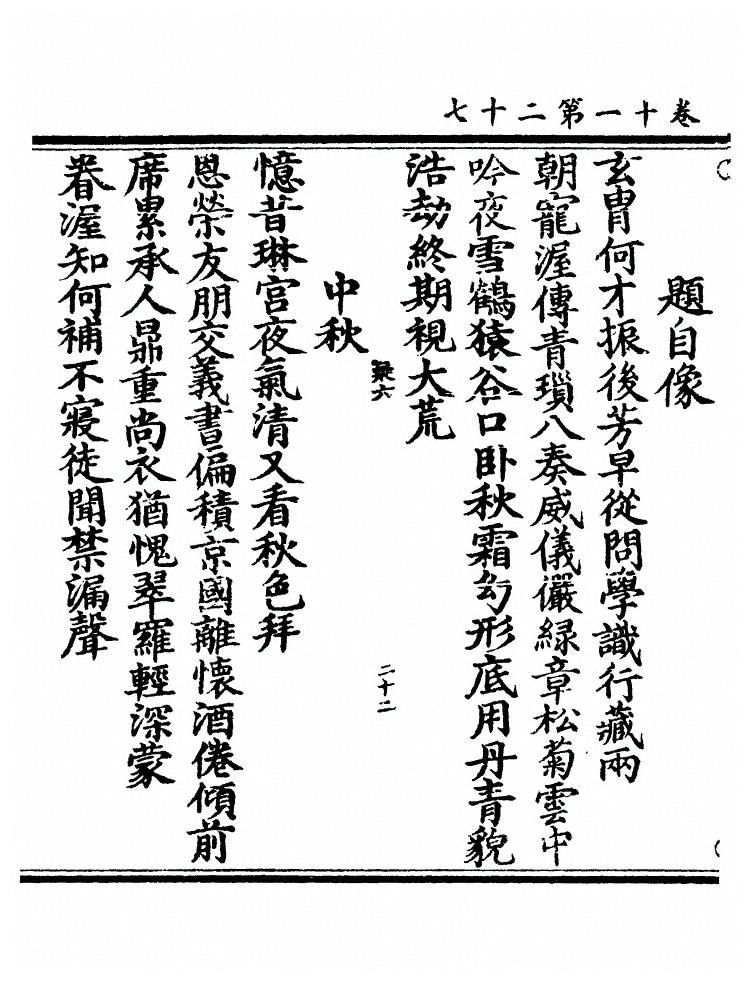 卷十一第二十七
題自像
玄冑何才振後芳早從問學識行藏兩
朝寵渥傳青瑣八奏威儀儼綠章松菊雲中
吟夜雪鶴猿谷口卧秋霜幻形底用丹青貌
浩劫終期視大荒
疑六
二十二
中秋
憶昔琳宮夜氣清又看秋色拜
恩榮友朋交義書偏積京國離懷酒倦傾前
席累承人鼎重尚衣猶愧翠羅輕深蒙
眷渥知何補不寢徒聞禁漏聲